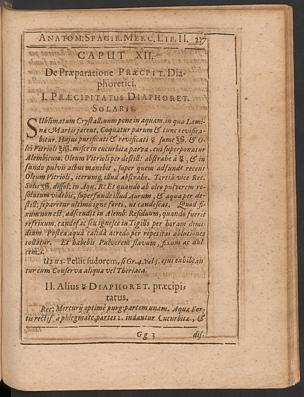 ANATOM. SPAGIR. MERC. LIB. II. 237
CAPUT XII.
De Præparatione PRÆCPIT. Dia-
phoretici.
I. PRÆCIPITATUS DIAPHORET.
SOLARIS.
Sublimatum Crystallinum pone in aquam, in qua Lami-
næ Martis jaceat, Coquatur parum & tunc revifica-
bitur. Hujus purificati & revificati ☿ sume ℥ß. & O-
lei Vitrioli
Alembicum. Oleum Vitrioli per destill: abstrahe à ☿, & in
fundo pulvis albus manebit, super quem adfunde recens
Oleum Vitrioli, iterumq, illud Abstrahe. Tertia vice Rec.
dissol: in Aqu. R. Et quando ab oleo pulverem re-
solutum videbis, superfunde illud Aurum, & aqua per de-
still; separetur ultimò igne forti, ut candescat. Quod fi-
xum non est, adscendit in Alemb. Residuum, quando fuerit
refrixum, candefac seu ignesce in Tigillo per horam dimi-
dium. Postea aqua calida acredo per repetitas ablutiones
tollatur. Et habebis Pulverem flavum, fixum ac dul-
cem.
Usus. Pellit sudorem, si Gr. 4. vel 5. ejus exhibean-
tur cum Conserva aliqua vel Theriaca.
II. Alius ☿ DIAPHORET. præcipi-
tatus.
Rec: Mercurij optimè purg: partem unam. Aquæ For-
tis rectif. à phlegmate, partes 2. indantur Cucurbitæ, &
Gg 3
dis-